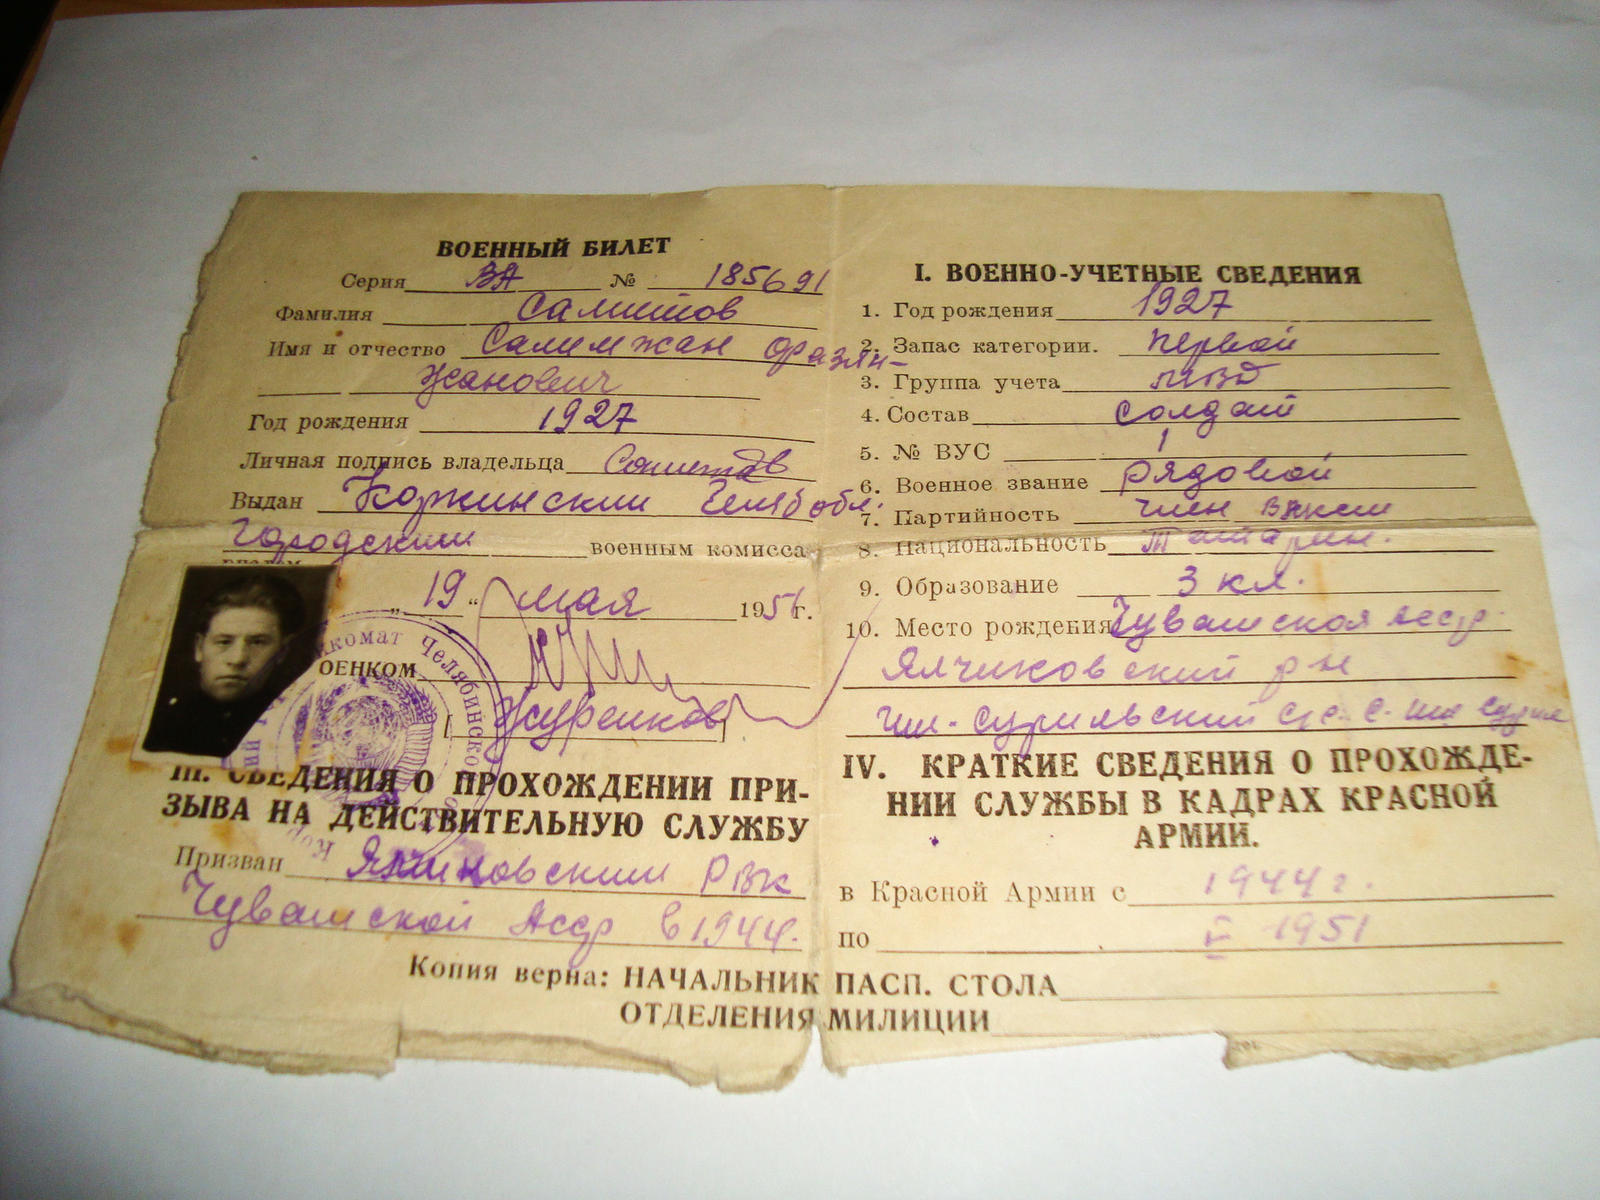 ВОЕННЫЙ БИЛЕТ
Серия ВА № 185691
Фамилия Самитов
Имя и отчество Салимжан Фразян-
жанович
Год рождения 1927
Личная подпись владельца Самитов
Выдан Коркинским Челяб обл.
Городским военным комисса
19 " мая 1951 г.
ОЕНКОМ
Журенков
III. СВЕДЕНИЯ О ПРОХОЖДЕНИИ ПРИ-
ЗЫВА НА ДЕЙСТВИТЕЛЬНУЮ СЛУЖБУ
Призван Ялчиковским РВК
Чувашской АССР в 1944.
I. ВОЕННО-УЧЕТНЫЕ СВЕДЕНИЯ
1. Год рождения 1927
2. Запас категории. первой
3. Группа учета МВД
4. Состав солдат
5. № ВУС 1
6. Военное звание рядовой
7. Партийность член ВЛКСМ
8. Национальность татарин.
9. Образование 3 кл.
10. Место рождения Чувашская АССР
Ялчиковский р-н
IV. КРАТКИЕ СВЕДЕНИЯ О ПРОХОЖДЕ-
НИИ СЛУЖБЫ В КАДРАХ КРАСНОЙ
АРМИИ.
в Красной Армии с 1944 г.
по 1951
Копия верна: НАЧАЛЬНИК ПАСП. СТОЛА
ОТДЕЛЕНИЯ МИЛИЦИИ